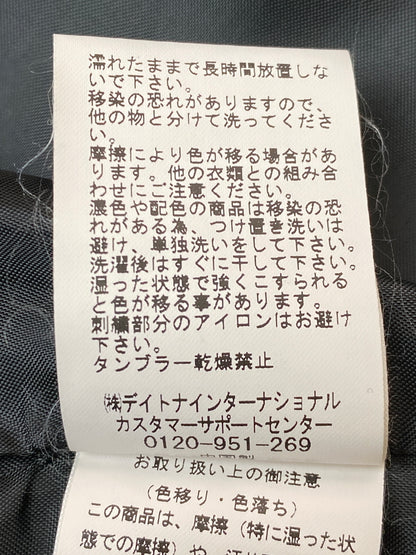 濡れたままで長時間放置しな
いで下さい。
移染の恐れがありますので、
他の物と分けて洗ってくださ
い。
摩擦により色が移る場合があ
ります。他の衣類との組み合
わせにご注意ください。
濃色や配色の商品は移染の恐
れがある為、つけ置き洗いは
避け、単独洗いをして下さい。
洗濯後はすぐに干して下さい。
湿った状態で強くこすられる
と色が移る事があります。
刺繍部分のアイロンはお避け
下さい。
タンブラー乾燥禁止
㈱デイトナインターナショナル
カスタマーサポートセンター
0120-951-269
お取り扱い上の御注意
(色移り・色落ち)
この商品は、摩擦(特に湿った状
態での摩擦)や、汗